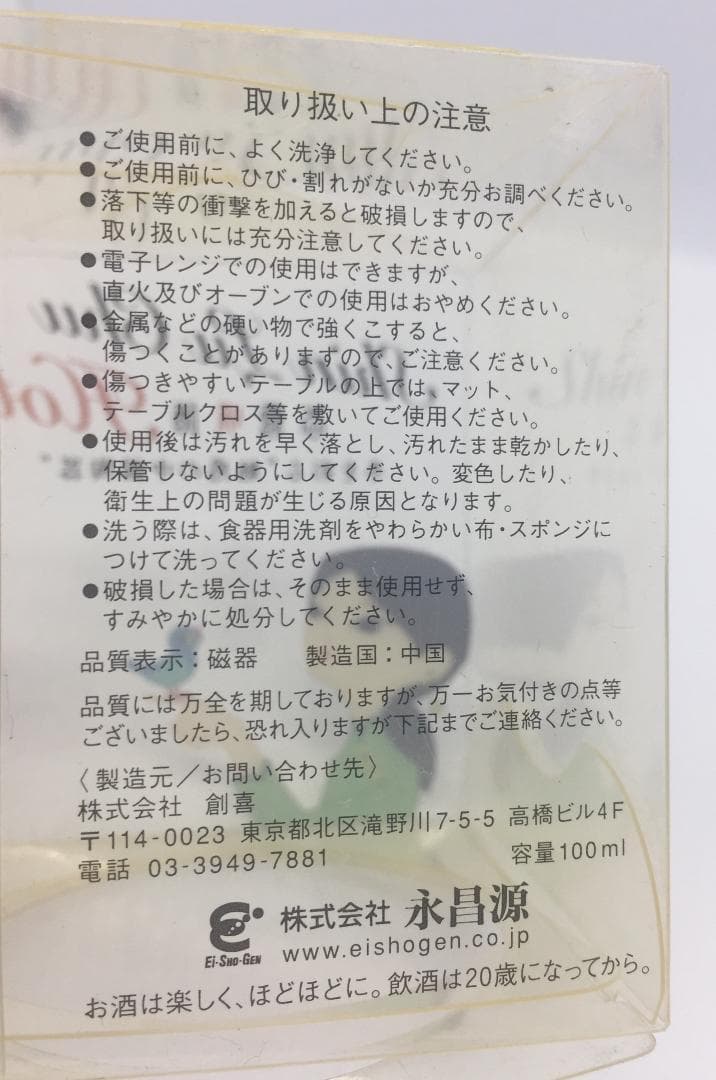 取り扱い上の注意
●ご使用前に、よく洗浄してください。
●ご使用前に、ひび・割れがないか充分お調べください。
●落下等の衝撃を加えると破損しますので、
取り扱いには充分注意してください。
●電子レンジでの使用はできますが、
直火及びオーブンでの使用はおやめください。
●金属などの硬い物で強くこすると、
傷つくことがありますので、ご注意ください。
●傷つきやすいテーブルの上では、マット、
テーブルクロス等を敷いてご使用ください。
●使用後は汚れを早く落とし、汚れたまま乾かしたり、
保管しないようにしてください。変色したり、
衛生上の問題が生じる原因となります。
●洗う際は、食器用洗剤をやわらかい布・スポンジに
つけて洗ってください。
●破損した場合は、そのまま使用せず、
すみやかに処分してください。
品質表示：磁器 製造国：中国
品質には万全を期しておりますが、万一お気付きの点等
ございましたら、恐れ入りますが下記までご連絡ください。
〈製造元／お問い合わせ先〉
株式会社 創喜
〒114-0023 東京都北区滝野川7-5-5 高橋ビル4F
電話 03-3949-7881 容量100ml
Ei-Sho-Gen 株式会社 永昌源
www.eishogen.co.jp
お酒は楽しく、ほどほどに。飲酒は20歳になってから。